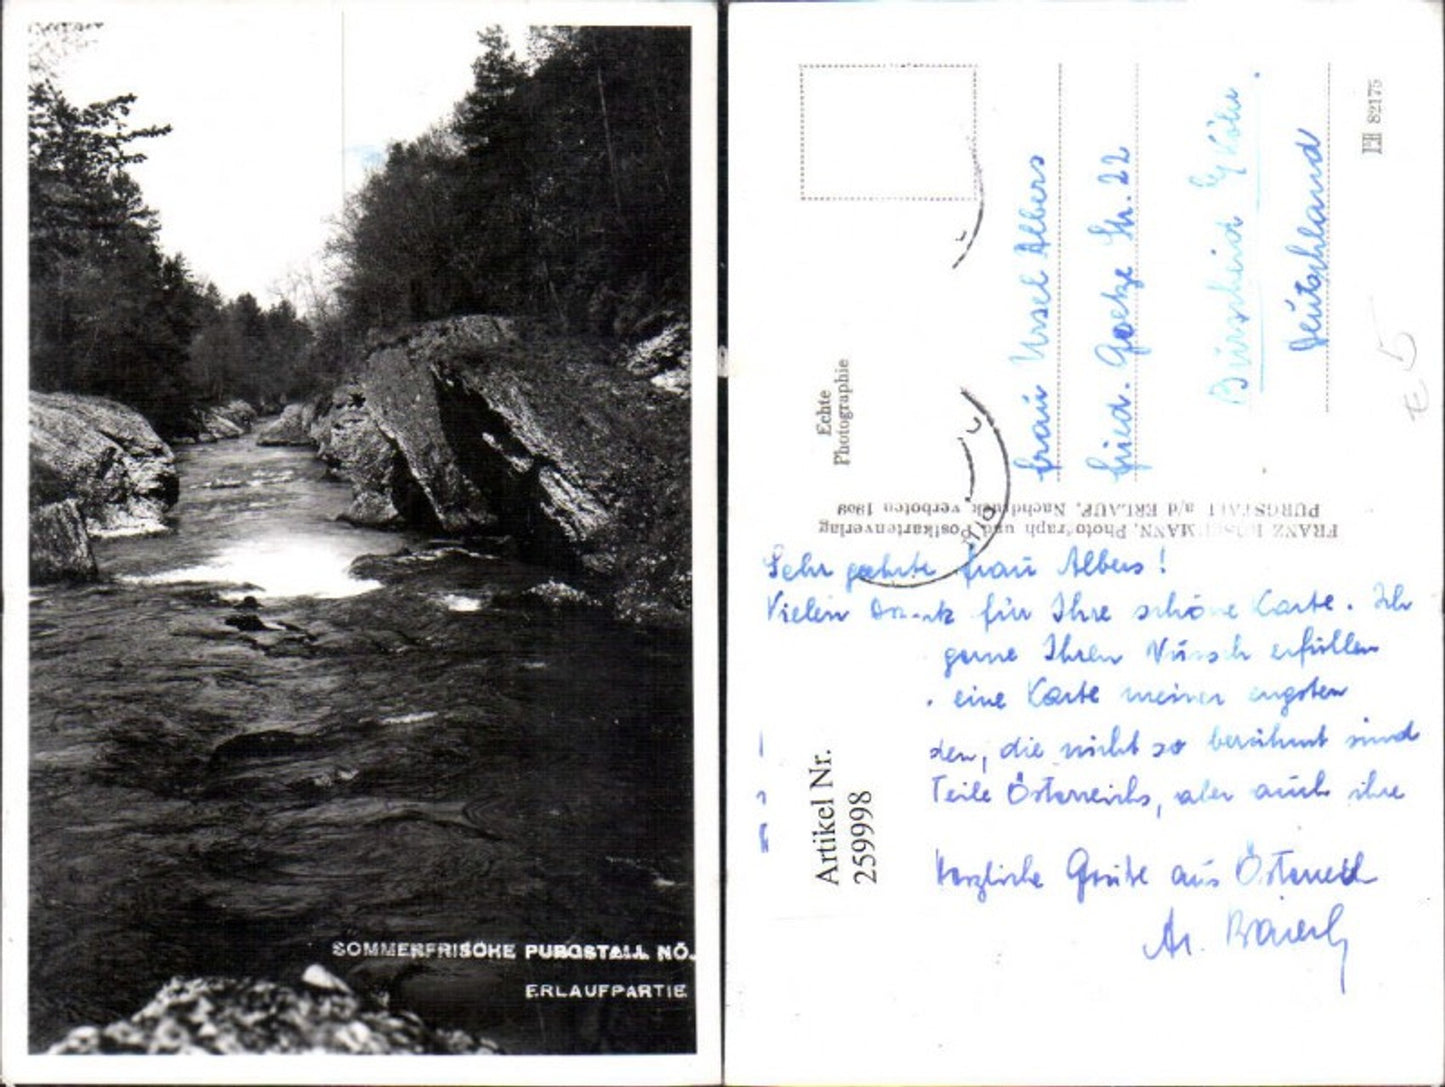 SOMMERFRISCHE PURGSTALL NÖ.
ERLAUFPARTIE
Echte
Photographie
Frau Ursel Albers
Fried. Goetze Str. 22
Burscheid b/Köln
Deutschland
82175
FRANZ MANN, Photograph und Postkartenverlag
PURGSTALL a/d ERLAUF, Nachdruck verboten
Sehr geehrte Frau Albers!
Vielen Dank für Ihre schöne Karte. Ich
gerne Ihren Wunsch erfüllen
eine Karte meiner engsten
den, die nicht so berühmt sind
Teile Österreichs, aber auch ihre
Herzliche Grüße aus Österreich
Artikel Nr.
259998
5